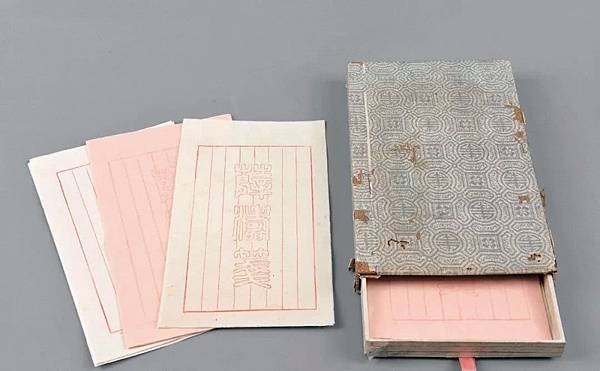 薛濤箋